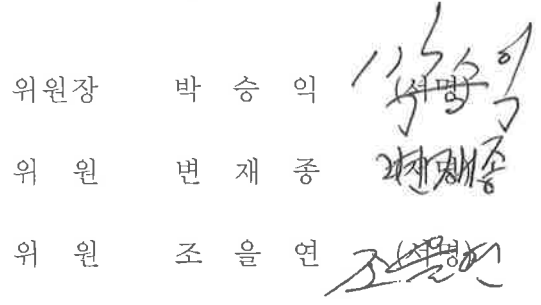 위원장 박 승 익 (서명)
위 원 변 재 종 (서명)
위 원 조 을 연 (서명)